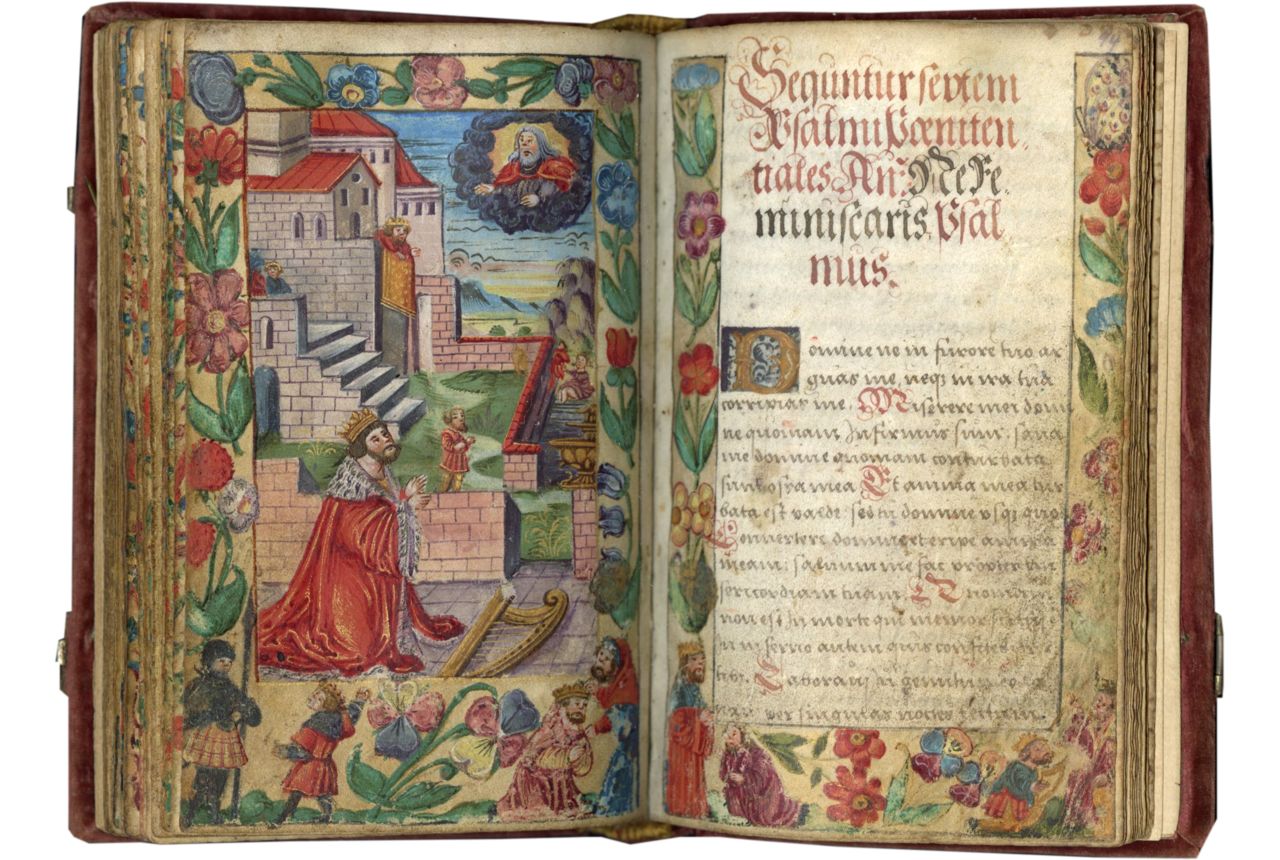 Sequntur septem
Psalmi Pœniten
tiales An: Ne Re.
miniscaris. Psal
mus.
Domine ne in furore tuo ar
guas me, neqz in ira tua
corripias me. Miserere mei domi
ne quoniam Infirmus sum: sana
me domine quoniam conturbata
sunt ossa mea Et anima mea tur
bata est valde: sed tu domine vsqz quo
Conuertere domine et eripe anima
meam: saluum me fac propter mi
sericordiam tuam. Quoniam
non est In morte qui memor sit
In inferno autem quis confitebit
tibi Laboraui In gemitu meo la
per singulas noctes lectum